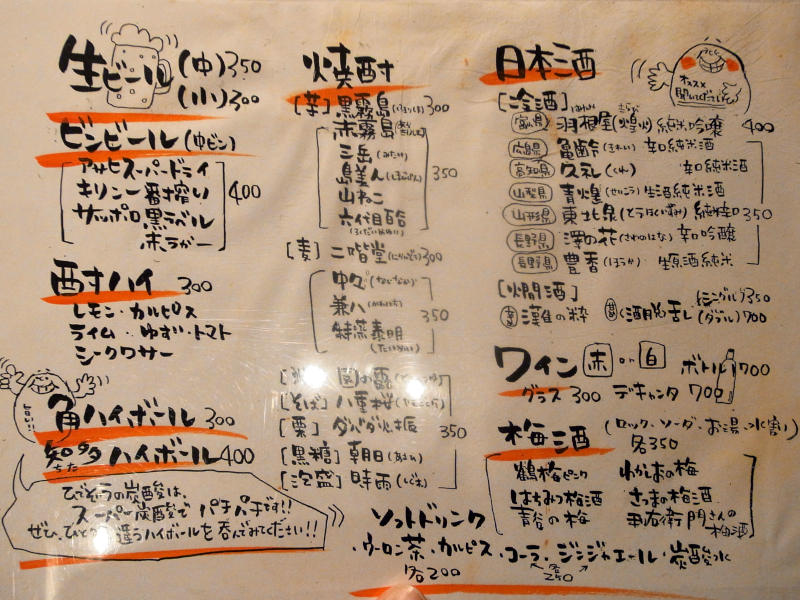 生ビール (中) 350
(小) 300
ビンビール (中ビン)
アサヒスーパードライ
キリン一番搾り
サッポロ黒ラベル
赤ラガー
400
酎ハイ 300
レモン・カルピス
ライム・ゆず・トマト
シークワサー
旨い!!
角ハイボール 300
知多ハイボール 400
ちた
ひでぞうの炭酸は、
スーパー炭酸で パチパチです!!
ぜひ、ひと 違うハイボールを呑んでみてください!!
焼酎
[芋] 黒霧島 300
赤霧島
三岳 (みたけ)
島美人
山ねこ
六代目百合
350
[麦] 二階堂 300
中々 (なかなか)
兼八 (かねはち)
特蒸泰明
(たいめい)
350
園の露
[そば] 八重桜
[栗] ダバダ火振
[黒糖] 朝日 (あさひ)
[泡盛] 時雨 (しぐれ)
350
ソフトドリンク
・ウーロン茶・カルピス・コーラ・ジンジャエール・炭酸水
各200
各250
日本酒
オススメ
聞いて下さい
[冷酒]
富山県 羽根屋 (煌火) 純米吟醸 400
広島県 亀齢 (きれい) 辛口純米酒
高知県 久礼 (くれ) 純米酒
山梨県 青煌 (せいこう) 生酒純米酒
山形県 東北泉 (とうほくいずみ) 純辛口 350
長野県 澤の花 (さわのはな) 辛口吟醸
長野県 豊香 (ほうか) 生原酒純米
[燗酒]
灘の粋
酒脱苦し
(シングル) 350
(ダブル) 700
ワイン 赤 or 白 ボトル 1700
グラス 300 デキャンタ 700
梅酒 (ロック、ソーダ、お湯、水割)
各350
鶴梅ピンク わかまの梅
はちみつ梅酒 さつまの梅酒
青谷の梅 右衛門さんの
梅酒